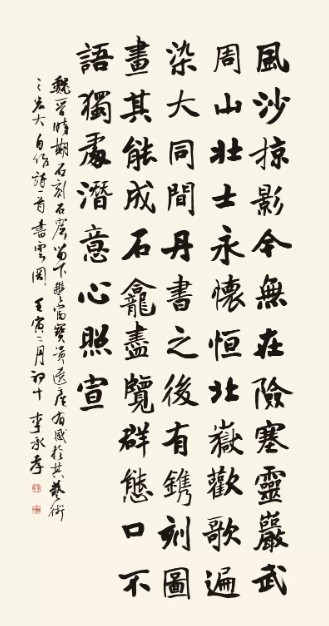 風沙掠影今無在險塞靈巖武
周山壯士永懷恒北嶽歡歌遍
染大同間丹書之後有鐫刻圖
畫其能成石龕盡覽群態口不
語獨處潛意心照宣
魏晉時期石刻石窟留下豐富寶貴遺產有感於其藝術
之宏大自作詩一首書雲岡壬寅二月初十李承孝